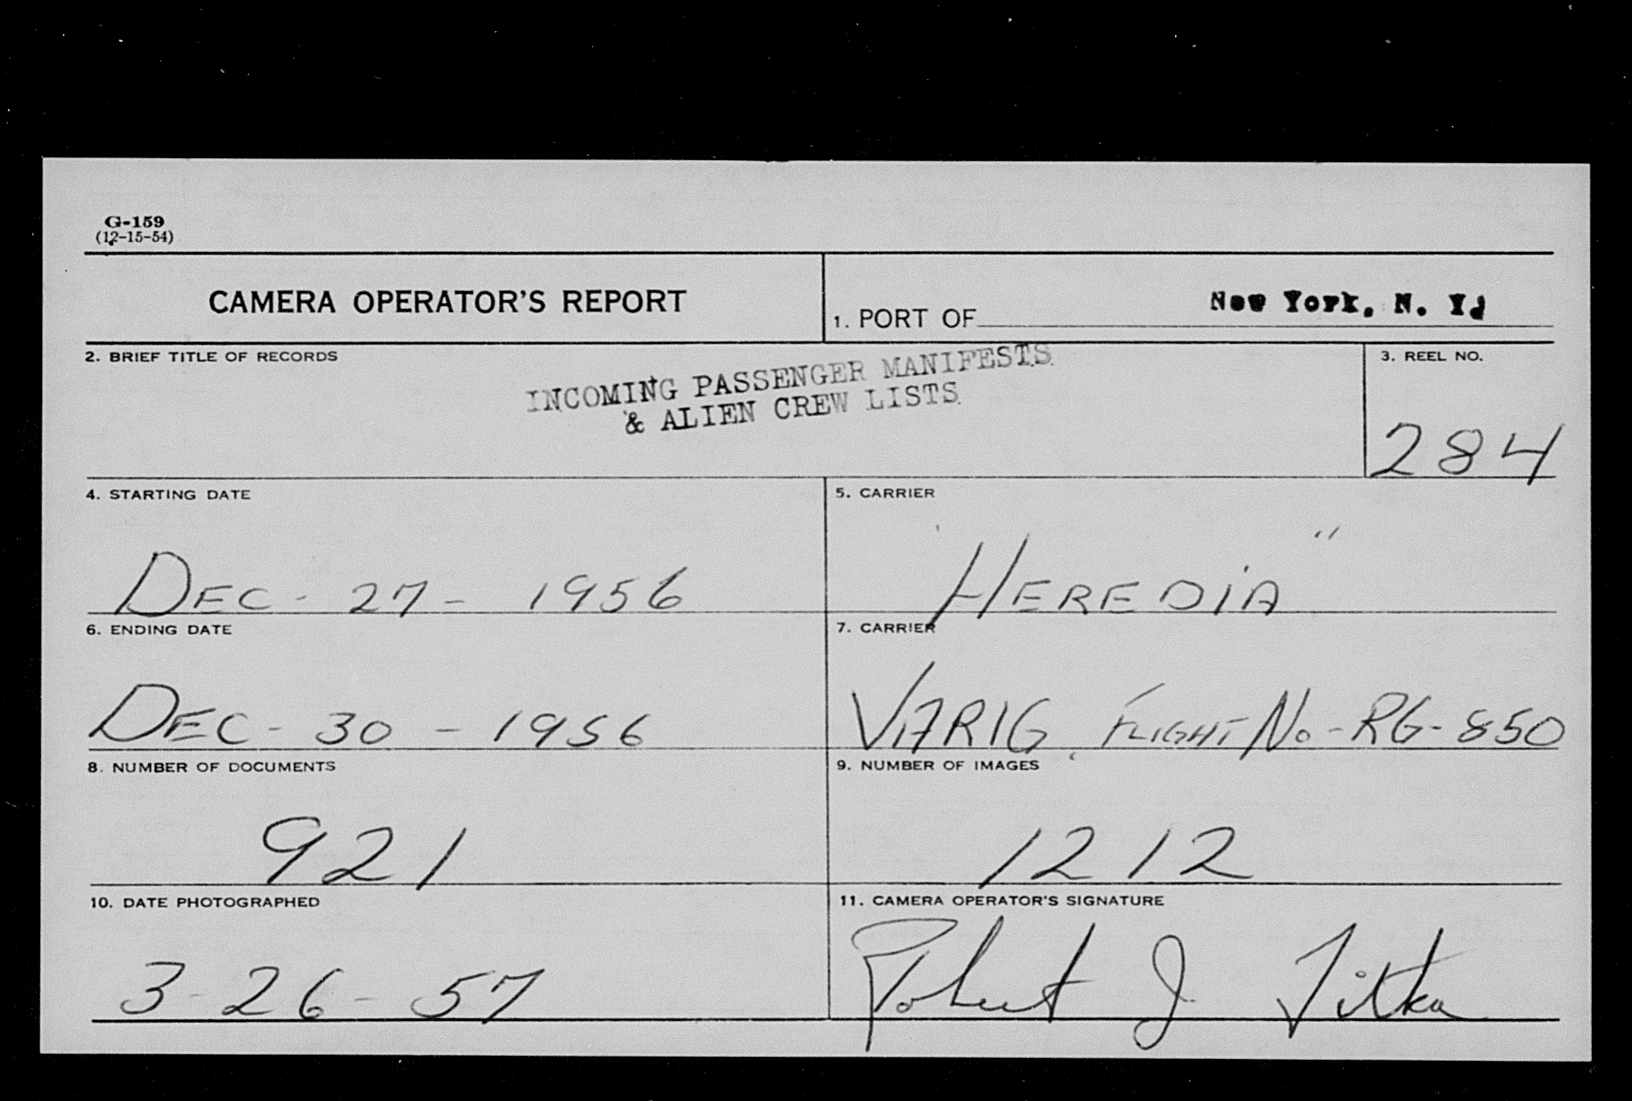 G-159
(12-15-54)
CAMERA OPERATOR'S REPORT
1. PORT OF New York, N. Y.
2. BRIEF TITLE OF RECORDS
INCOMING PASSENGER MANIFESTS
& ALIEN CREW LISTS
3. REEL NO.
284
4. STARTING DATE
DEC - 27 - 1956
5. CARRIER
HEREDIA "
6. ENDING DATE
DEC - 30 - 1956
7. CARRIER
VARIG FLIGHT No - RG - 850
8. NUMBER OF DOCUMENTS
921
9. NUMBER OF IMAGES
1212
10. DATE PHOTOGRAPHED
3 - 26 - 57
11. CAMERA OPERATOR'S SIGNATURE
Robert J.